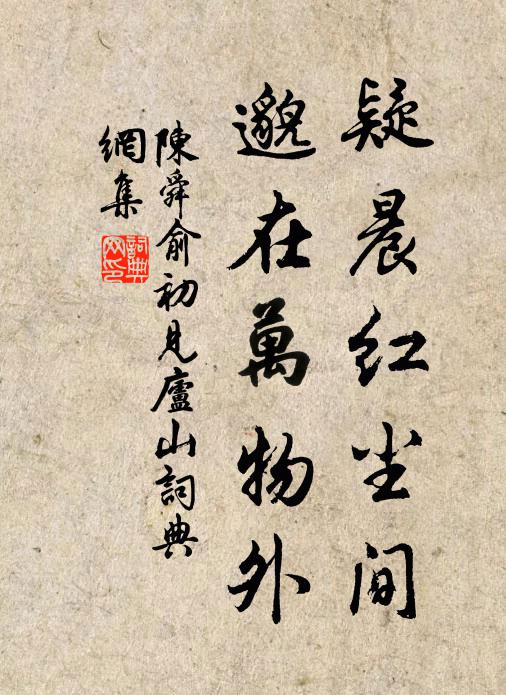 疑晨红尘间
邈在萬物外
陳舜俞初見廬山詞典
網集
詞典
网印